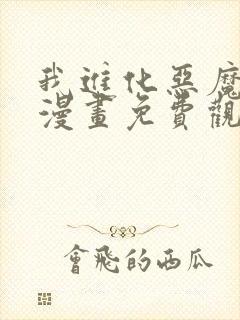 我進化惡魔
漫畫免費觀
會飛的西瓜